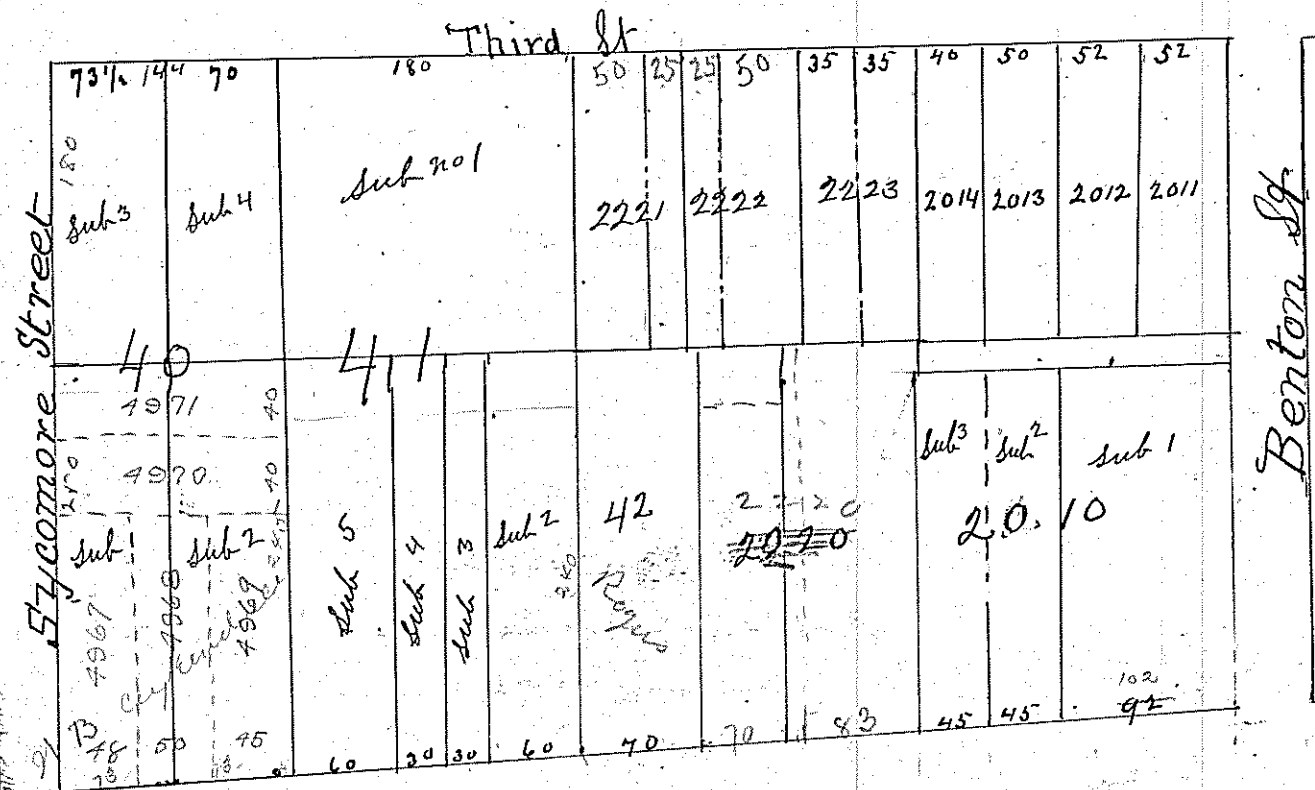 Third St
73½ 144 70 180 50 25 25 50 35 35 40 50 52 52
180
Sub 3 Sub 4 Sub no 1 2221 2222 2223 2014 2013 2012 2011
Sycamore Street
Benton St
40 41
4971 40
4970 40
Sub 3 Sub 2 Sub 1
Sub 1 Sub 2 Sub 5 Sub 4 Sub 3 Sub 2 42 2220 20.10
2020
4967 4968 4969
240
102
B 48 50 45 60 30 30 60 70 70 83 45 45 92